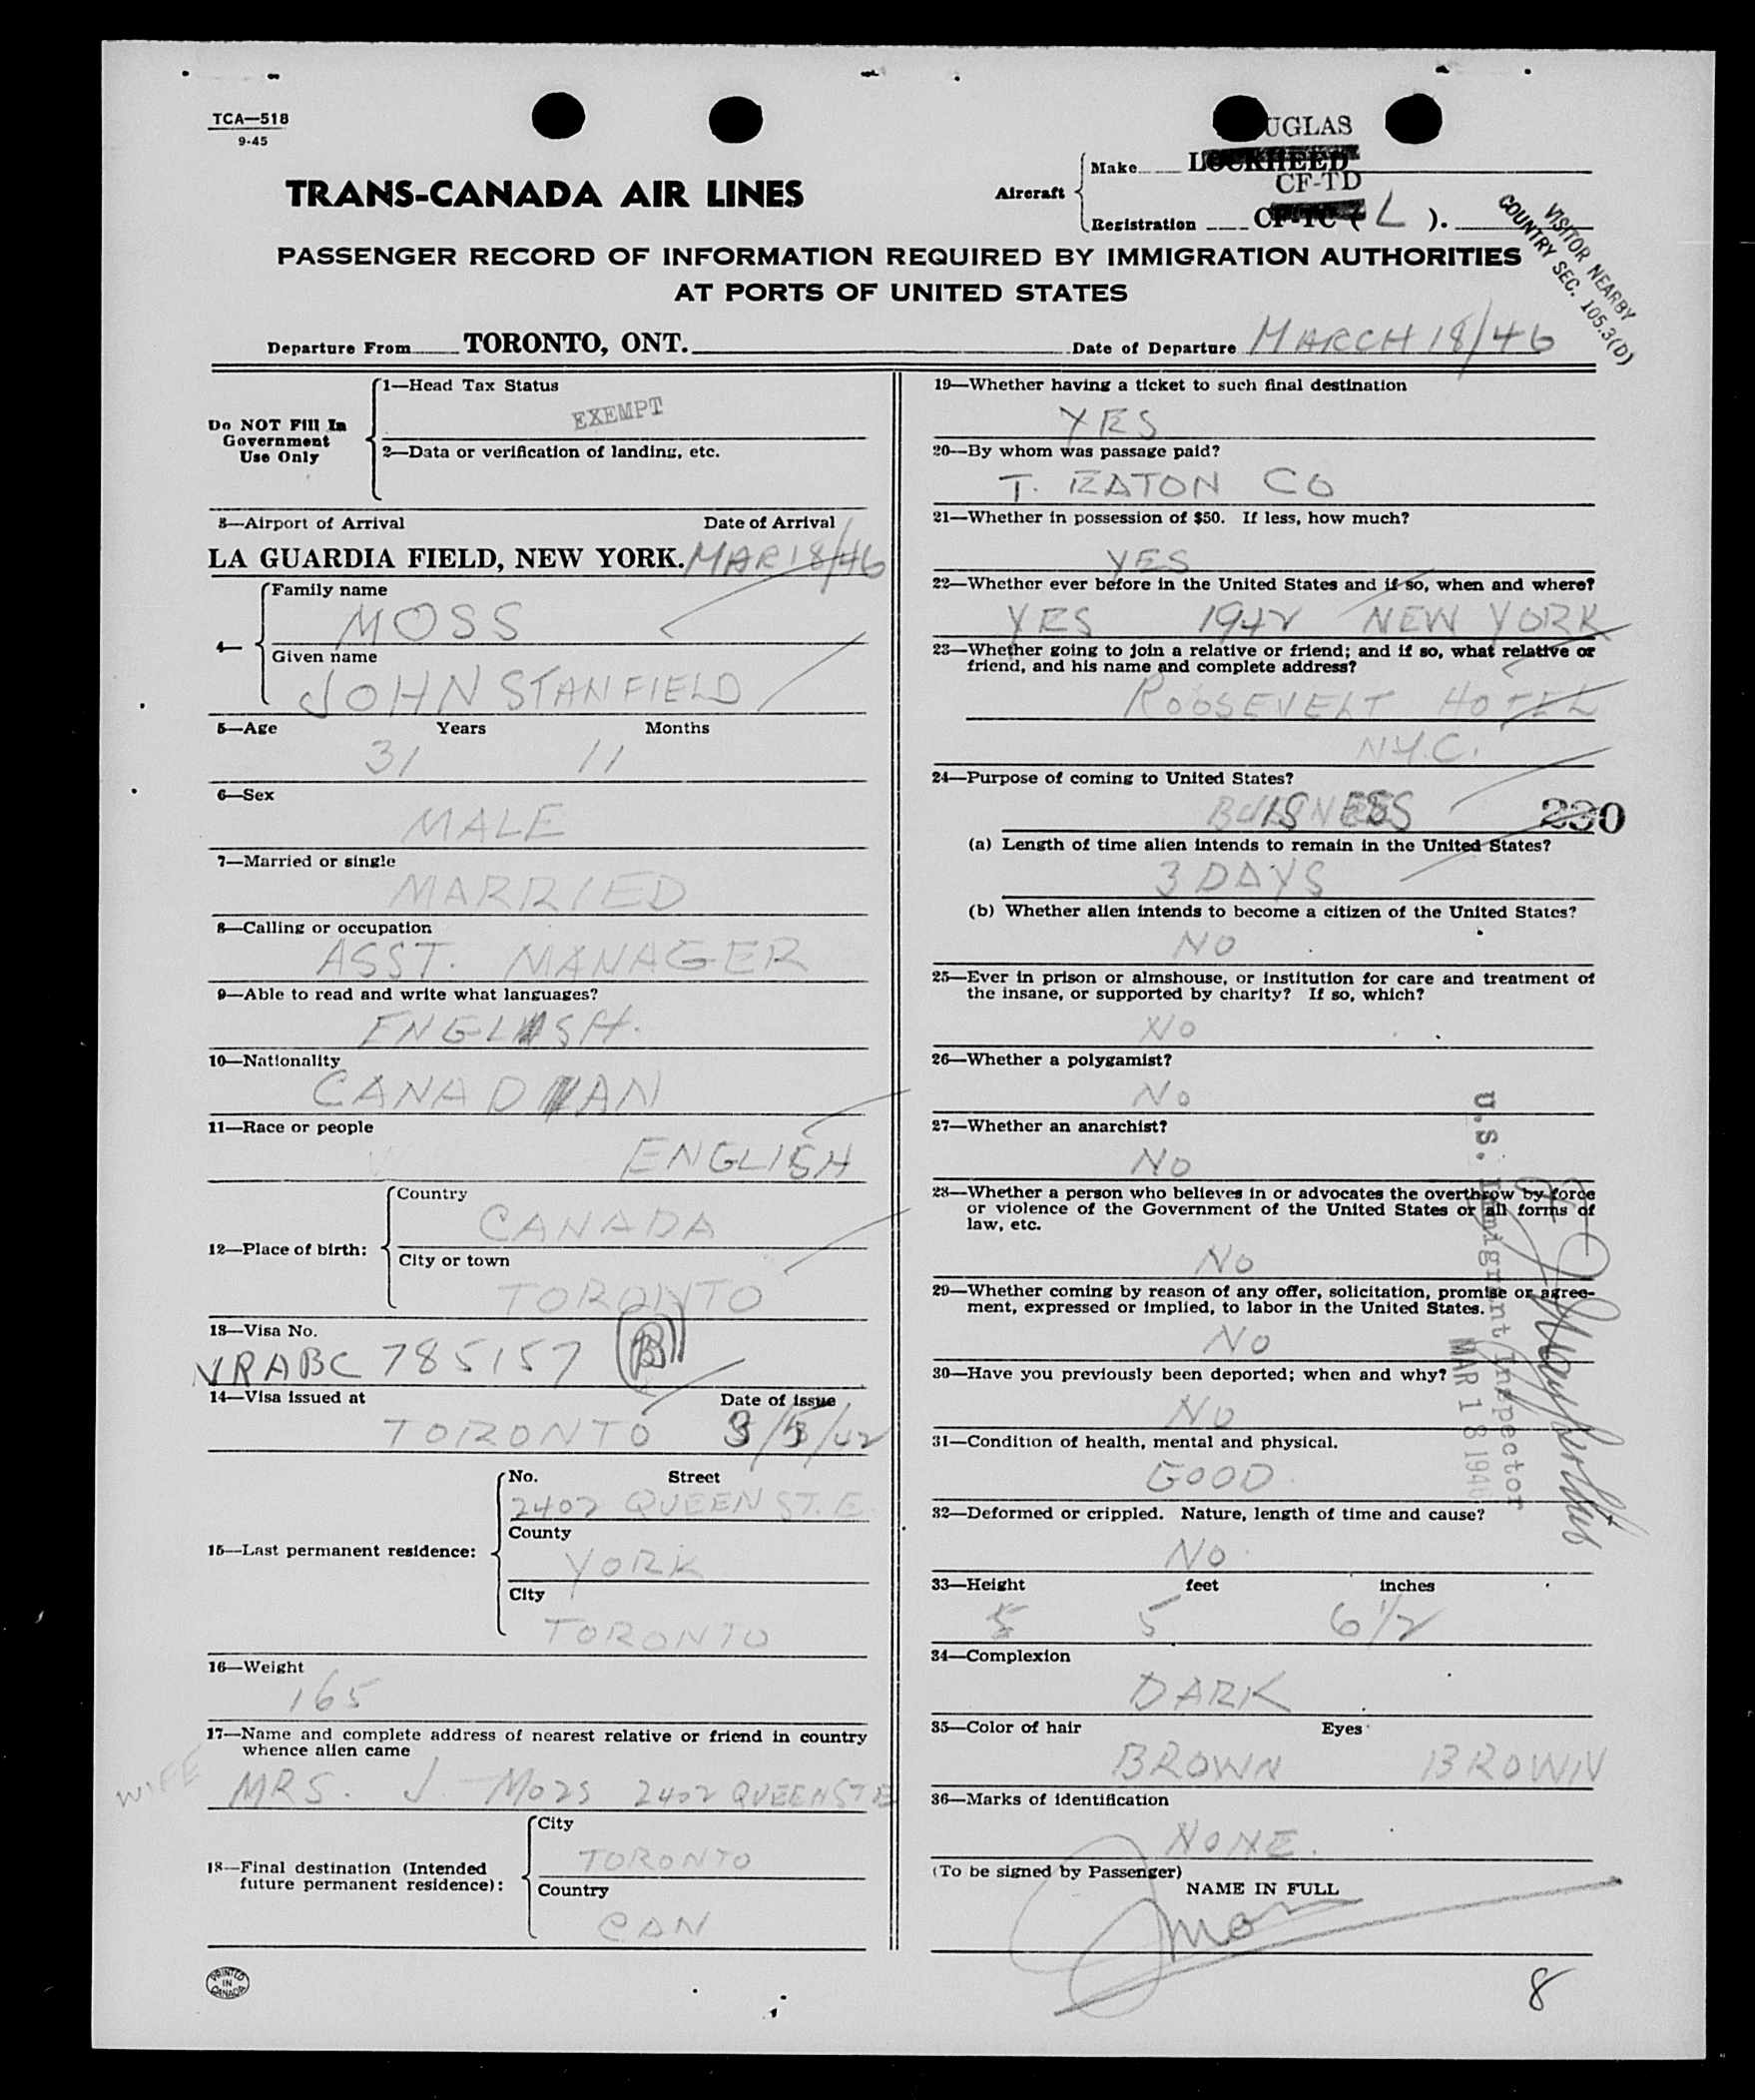 TCA—518
9-45
TRANS-CANADA AIR LINES
Aircraft
UGLAS
Make LOCKHEED
CF-TD
Registration CF-TC ( L ).
VISITOR NEARBY
COUNTRY SEC. 105.3(D)
PASSENGER RECORD OF INFORMATION REQUIRED BY IMMIGRATION AUTHORITIES
AT PORTS OF UNITED STATES
Departure From TORONTO, ONT. Date of Departure MARCH 18/46
Do NOT Fill In
Government
Use Only
1—Head Tax Status
EXEMPT
2—Data or verification of landing, etc.
3—Airport of Arrival Date of Arrival
LA GUARDIA FIELD, NEW YORK. MAR 18/46
4—
Family name
MOSS
Given name
JOHN STANFIELD
5—Age Years Months
31 11
6—Sex
MALE
7—Married or single
MARRIED
8—Calling or occupation
ASST. MANAGER
9—Able to read and write what languages?
ENGLISH.
10—Nationality
CANADIAN
11—Race or people
ENGLISH
12—Place of birth:
Country
CANADA
City or town
TORONTO
13—Visa No.
VRABC 785157 B
14—Visa issued at Date of issue
TORONTO 3/5/42
15—Last permanent residence:
No. Street
2402 QUEEN ST. E.
County
YORK
City
TORONTO
16—Weight
165
17—Name and complete address of nearest relative or friend in country
whence alien came
WIFE MRS. J MOSS 2402 QUEEN ST E
18—Final destination (Intended
future permanent residence):
City
TORONTO
Country
CAN
PRINTED
IN
CANADA
19—Whether having a ticket to such final destination
YES
20—By whom was passage paid?
T. EATON CO
21—Whether in possession of $50. If less, how much?
YES
22—Whether ever before in the United States and if so, when and where?
YES 1942 NEW YORK
23—Whether going to join a relative or friend; and if so, what relative or
friend, and his name and complete address?
ROOSEVELT HOTEL
N.Y.C.
24—Purpose of coming to United States?
BUISNESS
230
(a) Length of time alien intends to remain in the United States?
3 DAYS
(b) Whether alien intends to become a citizen of the United States?
NO
25—Ever in prison or almshouse, or institution for care and treatment of
the insane, or supported by charity? If so, which?
NO
26—Whether a polygamist?
No
27—Whether an anarchist?
NO
28—Whether a person who believes in or advocates the overthrow by force
or violence of the Government of the United States or all forms of
law, etc.
No
29—Whether coming by reason of any offer, solicitation, promise or agree-
ment, expressed or implied, to labor in the United States.
NO
30—Have you previously been deported; when and why?
NO
U.S. Immigrant Inspector
MAR 18 1946
31—Condition of health, mental and physical.
GOOD
32—Deformed or crippled. Nature, length of time and cause?
NO
33—Height feet inches
5 5 6 1/2
34—Complexion
DARK
35—Color of hair Eyes
BROWN BROWN
36—Marks of identification
NONE.
(To be signed by Passenger)
NAME IN FULL
8